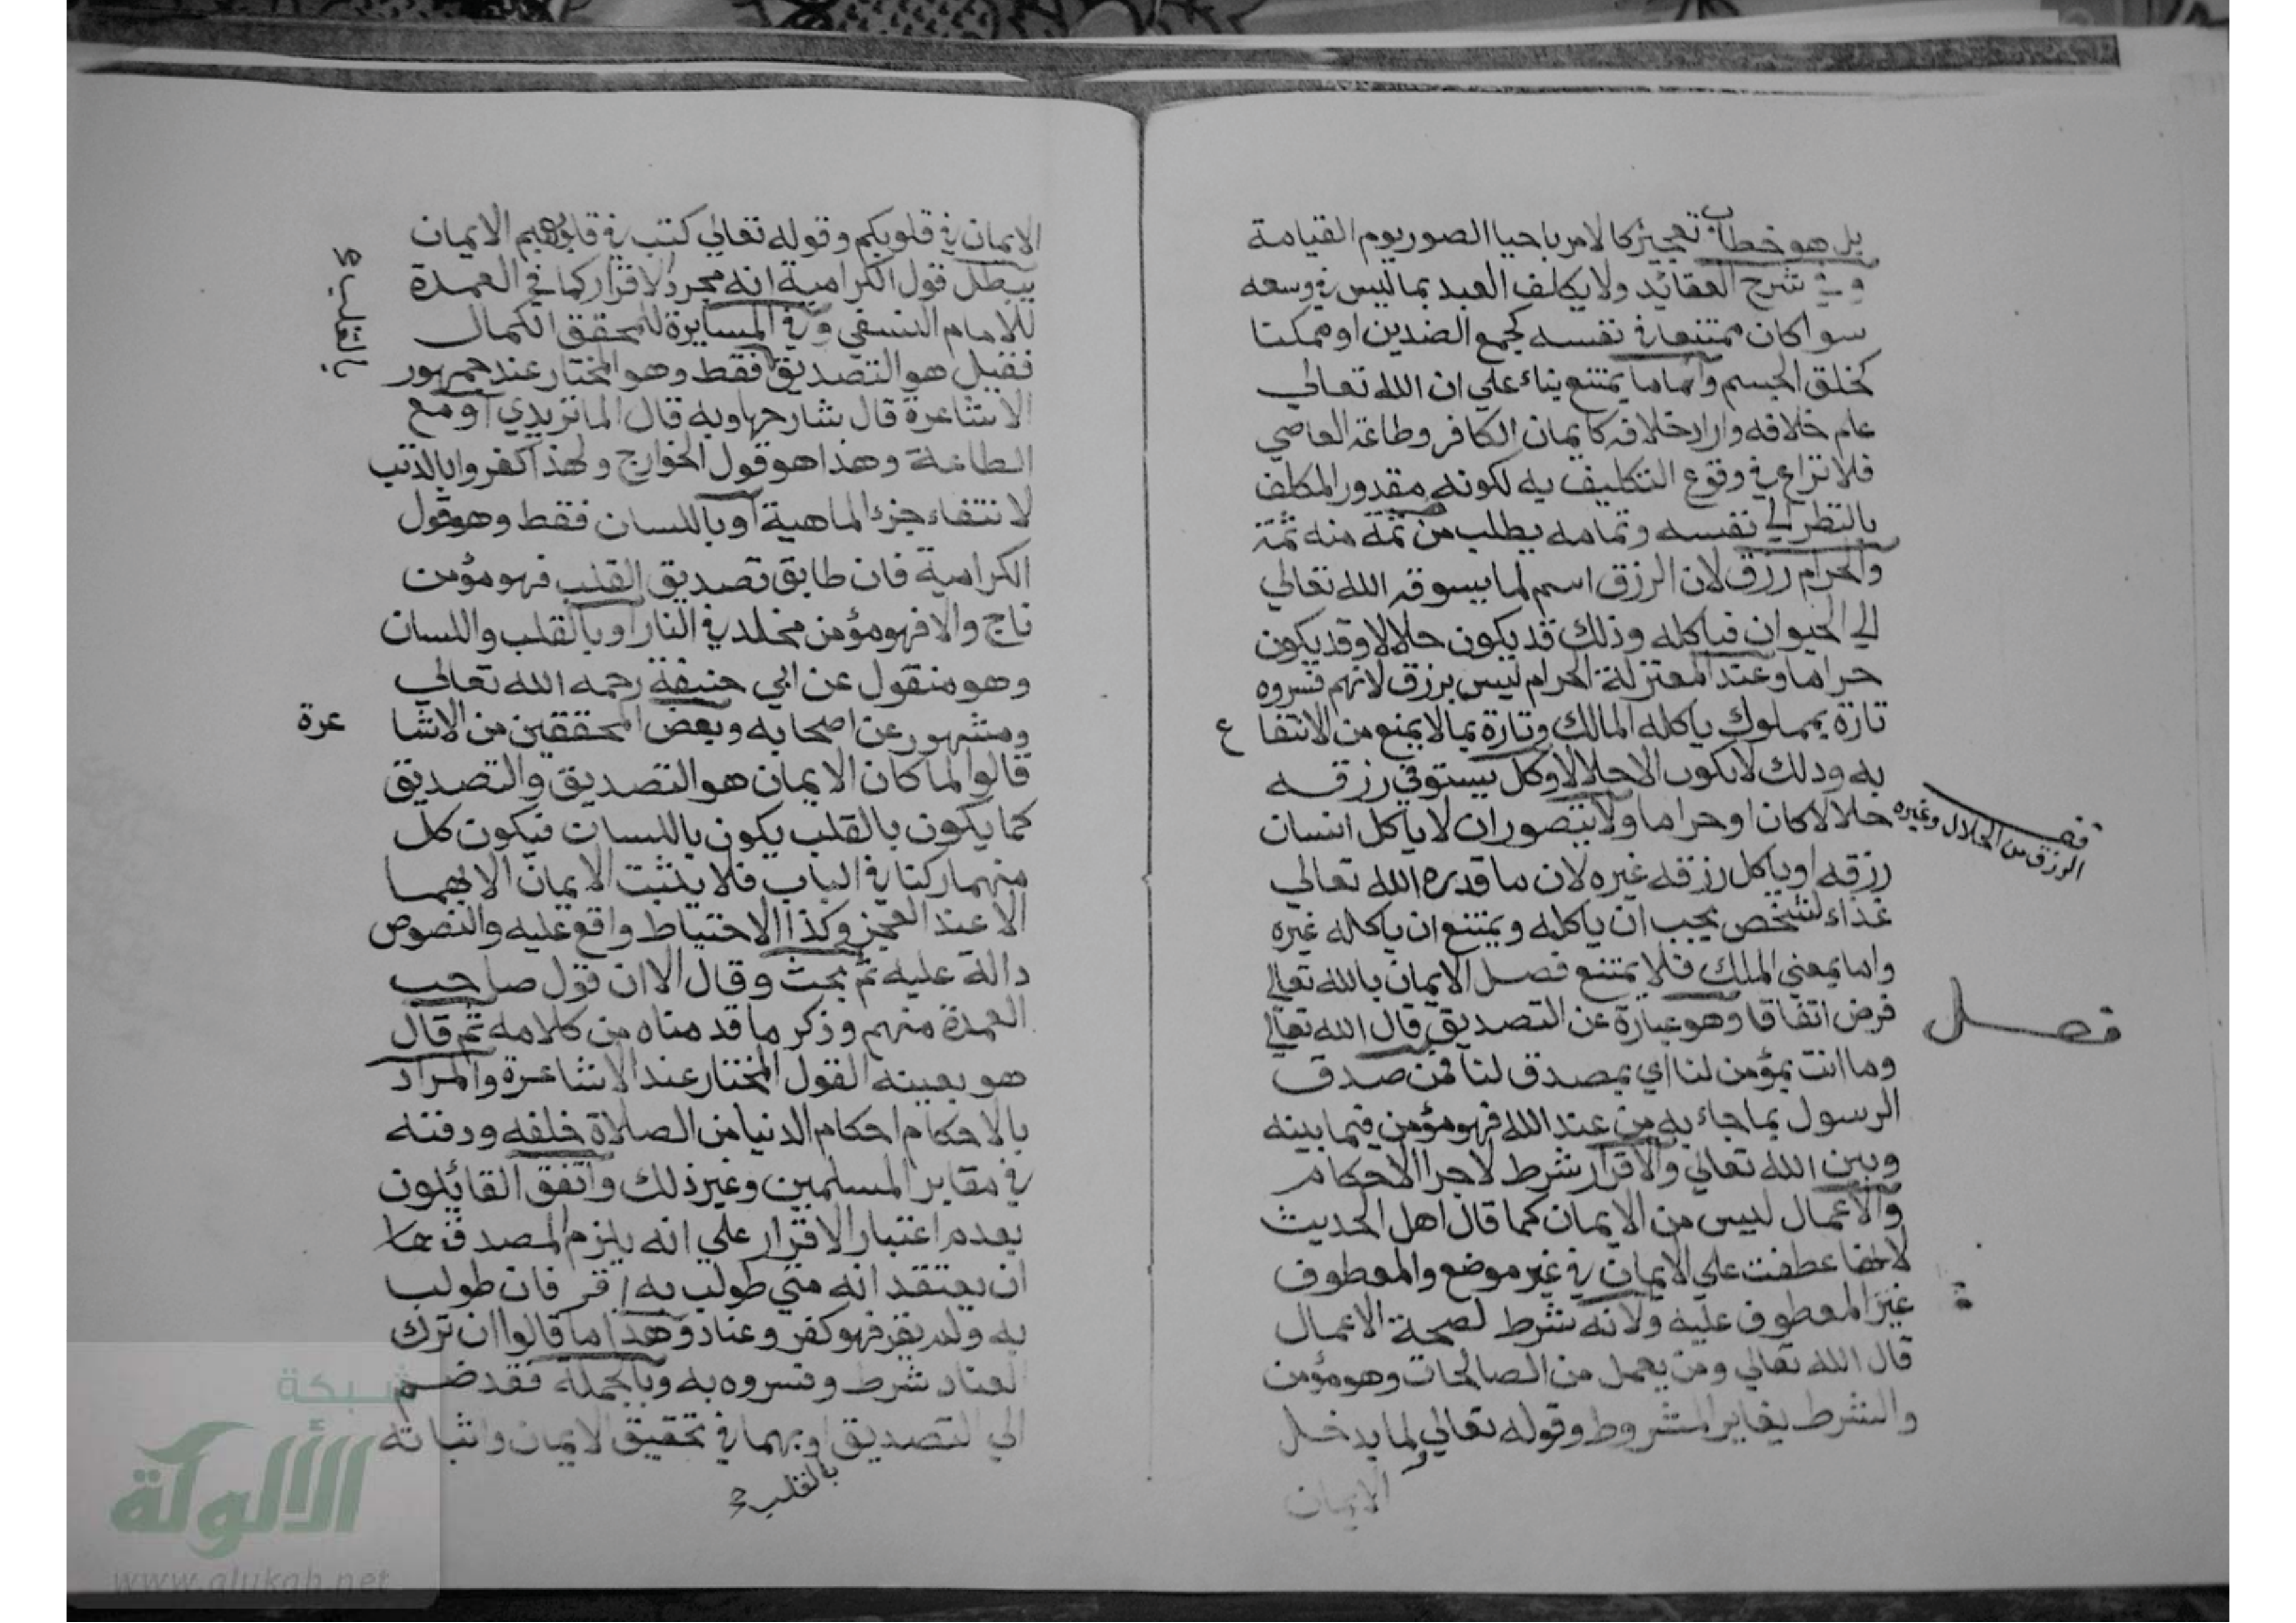 بل هو خطاب تعجيز كالامر باحيا الصور يوم القيامة
وفي شرح العقائد ولا يكلف العبد بما ليس في وسعه
سوا كان ممتنعا في نفسه كجمع الضدين او ممكنا
كخلق الجسم واما ما يمتنع بناء علي ان الله تعالي
علم خلافه واراد خلافه كايمان الكافر وطاعة العاصي
فلا نزاع في وقوع التكليف به لكونه مقدور المكلف
بالنظر الي نفسه وتمامه يطلب من ثمة منه ثمة
والحرام رزق لان الرزق اسم لما يسوقه الله تعالي
الي الحيوان فياكله وذلك قد يكون حلالا وقد يكون
حراما وعند المعتزلة الحرام ليس برزق لانهم فسروه
تارة بمملوك ياكله المالك وتارة بما لا يمنع من الانتفا ع
به وذلك لا يكون الا حلالا وكل يستوفي رزقه
حلالا كان او حراما ولا يتصور ان لا ياكل انسان
رزقه او ياكل رزقه غيره لان ما قدره الله تعالي
غذاء لشخص يجب ان ياكله ويمتنع ان ياكله غيره
واما بمعني الملك فلا يمتنع فصل الايمان بالله تعالي
فرض اتفاقا وهو عبارة عن التصديق قال الله تعالي
وما انت بمؤمن لنا اي بمصدق لنا فمن صدق
الرسول بما جاء به من عند الله فهو مؤمن فيما بينه
وبين الله تعالي والاقرار شرط لاجرا الاحكام
والاعمال ليس من الايمان كما قال اهل الحديث
لانها عطفت علي الايمان في غير موضع والمعطوف
غير المعطوف عليه ولانه شرط لصحة الاعمال
قال الله تعالي ومن يعمل من الصالحات وهو مؤمن
والشرط يغاير المشروط وقوله تعالي لما يدخل
الايمان
فصل
الرزق من الحلال وغيره
فصل
الايمان في قلوبكم وقوله تعالي كتب في قلوبهم الايمان
يبطل قول الكرامية انه مجرد الاقرار كما في العمدة
للامام النسفي وفي المسايرة للمحقق الكمال
فقيل هو التصديق فقط وهو المختار عند جمهور
الاشاعرة قال شارحها وبه قال الماتريدي او مع
الطاعة وهذا هو قول الخوارج ولهذا كفروا بالذنب
لانتفاء جزء الماهية او باللسان فقط وهو قول
الكرامية فان طابق تصديق القلب فهو مؤمن
ناج والا فهو مؤمن مخلد في النار او بالقلب واللسان
وهو منقول عن ابي حنيفة رحمه الله تعالي
ومشهور عن اصحابه وبعض المحققين من الاشا عرة
قالوا لما كان الايمان هو التصديق والتصديق
كما يكون بالقلب يكون باللسان فيكون كل
منهما ركنا في الباب فلا يثبت الايمان الا بهما
الا عند العجز وكذا الاحتياط واقع عليه والنصوص
دالة عليه ثم بحث وقال الا ان قول صاحب
العمدة منهم وذكر ما قدمناه من كلامه ثم قال
هو بعينه القول المختار عند الاشاعرة والمراد
بالاحكام احكام الدنيا من الصلاة خلفه ودفنه
في مقابر المسلمين وغير ذلك واتفق القائلون
بعدم اعتبار الاقرار علي انه يلزم المصدق
ان يعتقد انه متي طولب به اقر فان طولب
به ولم يقر فهو كفر وعناد وهذا ما قالوا ان ترك
العناد شرط وفسروه به وبالجملة فقد ضم
الي التصديق او بهما في تحقيق الايمان واثباته
بالقلب
بالقلب
شبكة
الألوكة
www.alukah.net